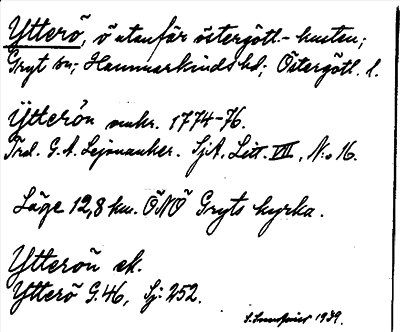 Ytterö, ö utanför östergötl.-kusten;
Gryt sn; Hammarkinds hd; Östergötl. l.
Ytterön omkr. 1774-76.
Trol. G. A. Lejonanker. SjA. Litt. VII, N:o 16.
Läge 12,8 km. ÖNÖ Gryts kyrka.
Ytterön ek.
Ytterö G.46, Sj: 252.
1939.